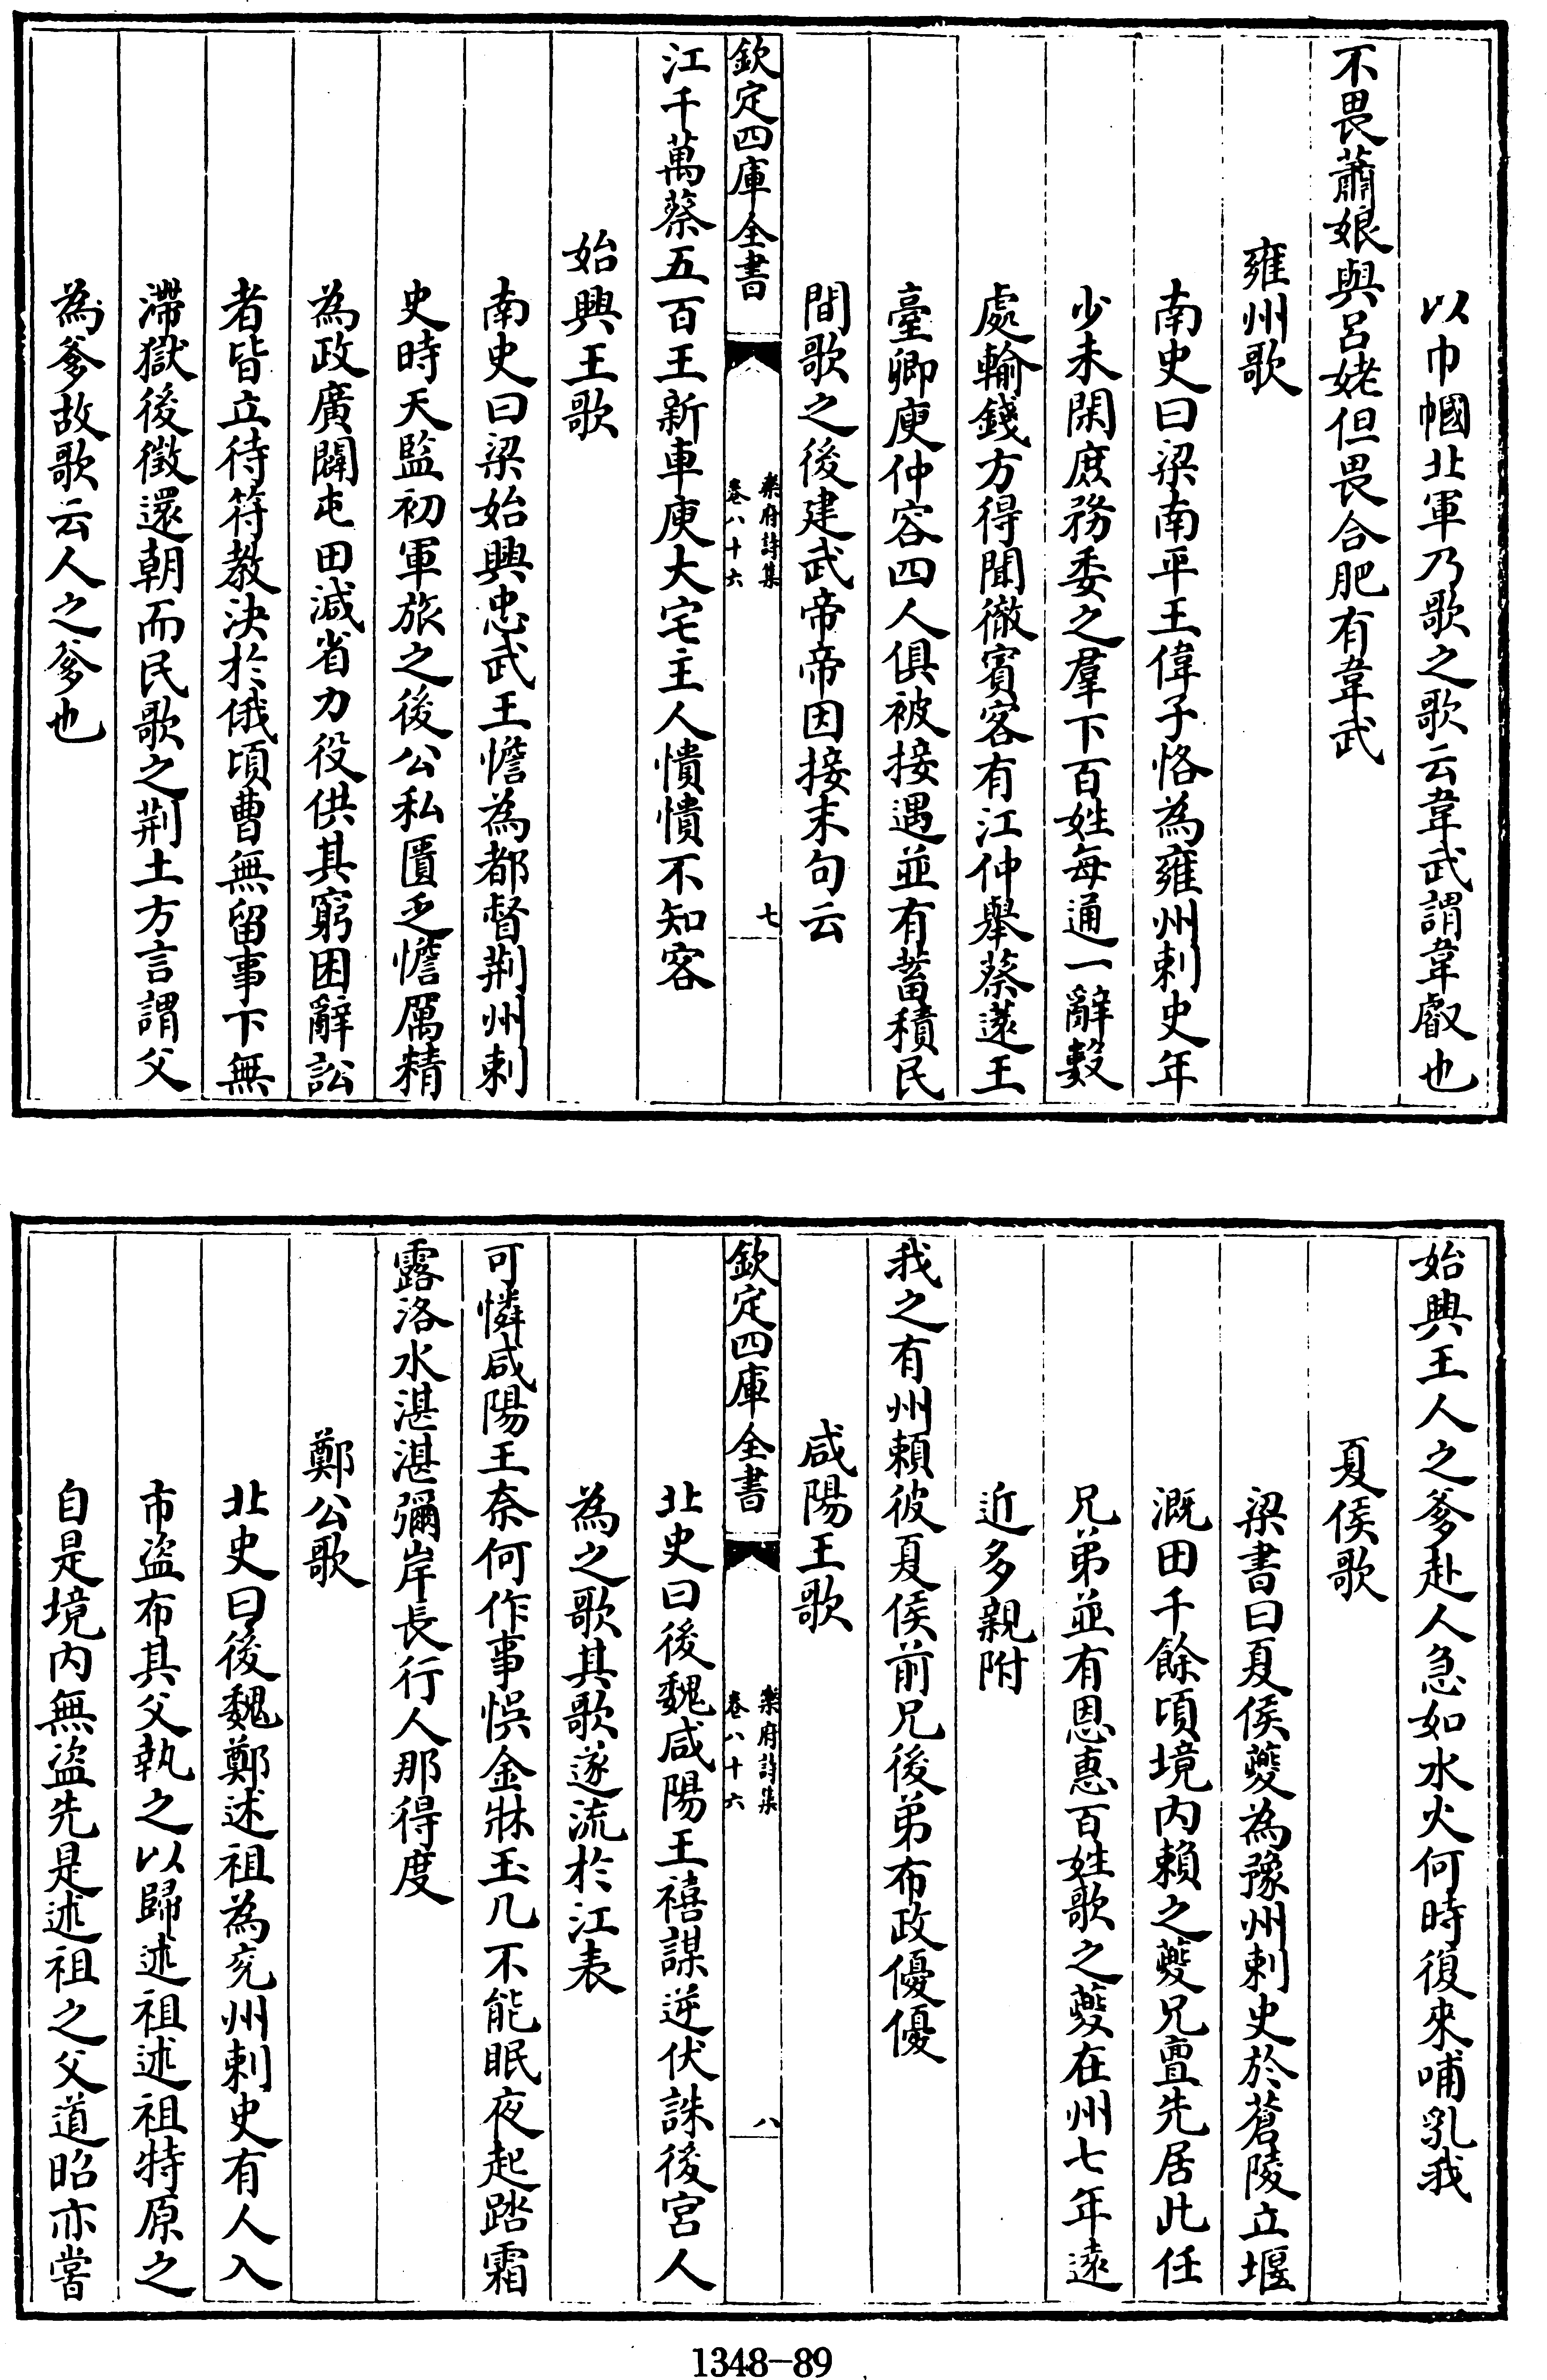 以巾幗北軍乃歌之歌云韋武謂韋叡也
不畏蕭娘與呂姥但畏合肥有韋武
雍州歌
南史曰梁南平王偉子恪為雍州刺史年
少未閑庶務委之羣下百姓每通一辭數
處輸錢方得聞徹賓客有江仲舉蔡薳王
臺卿庾仲容四人俱被接遇並有蓄積民
間歌之後建武帝帝因接末句云
欽定四庫全書
樂府詩集
卷八十六
七
江千萬蔡五百王新車庾大宅主人憒憒不知客
始興王歌
南史曰梁始興忠武王憺為都督荆州刺
史時天監初軍旅之後公私匱乏憺厲精
為政廣闢屯田減省力役供其窮困辭訟
者皆立待符教決於俄頃曹無留事下無
滯獄後徵還朝而民歌之荆土方言謂父
為爹故歌云人之爹也
始興王人之爹赴人急如水火何時復來哺乳我
夏侯歌
梁書曰夏侯夔為豫州刺史於蒼陵立堰
溉田千餘頃境內賴之夔兄亶先居此任
兄弟並有恩惠百姓歌之夔在州七年遠
近多親附
我之有州賴彼夏侯前兄後弟布政優優
咸陽王歌
欽定四庫全書
樂府詩集
卷八十六
八
北史曰後魏咸陽王禧謀逆伏誅後宮人
為之歌其歌遂流於江表
可憐咸陽王奈何作事悞金牀玉几不能眠夜起踏霜
露洛水湛湛彌岸長行人那得度
鄭公歌
北史曰後魏鄭述祖為兖州刺史有人入
市盜布其父執之以歸述祖述祖特原之
自是境內無盜先是述祖之父道昭亦嘗
1348-89